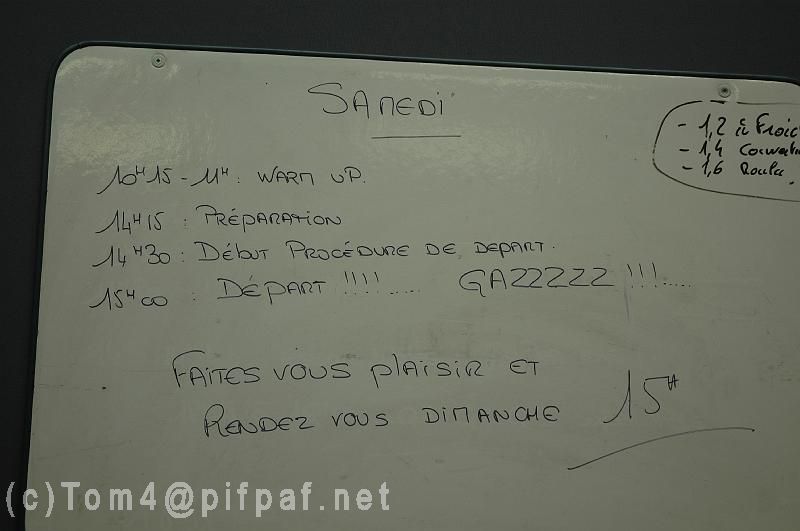 SAMEDI
- 1,2 à Froid
- 1,4
- 1,6
10H15 - 11H : WARM UP.
14H15 : PRÉPARATION
14H30 : DÉBUT PROCÉDURE DE DEPART.
15H00 : DÉPART !!!!..... GAZZZZZ !!!.....
FAITES VOUS PLAISIR ET
RENDEZ VOUS DIMANCHE 15H
(c)Tom4@pifpaf.net